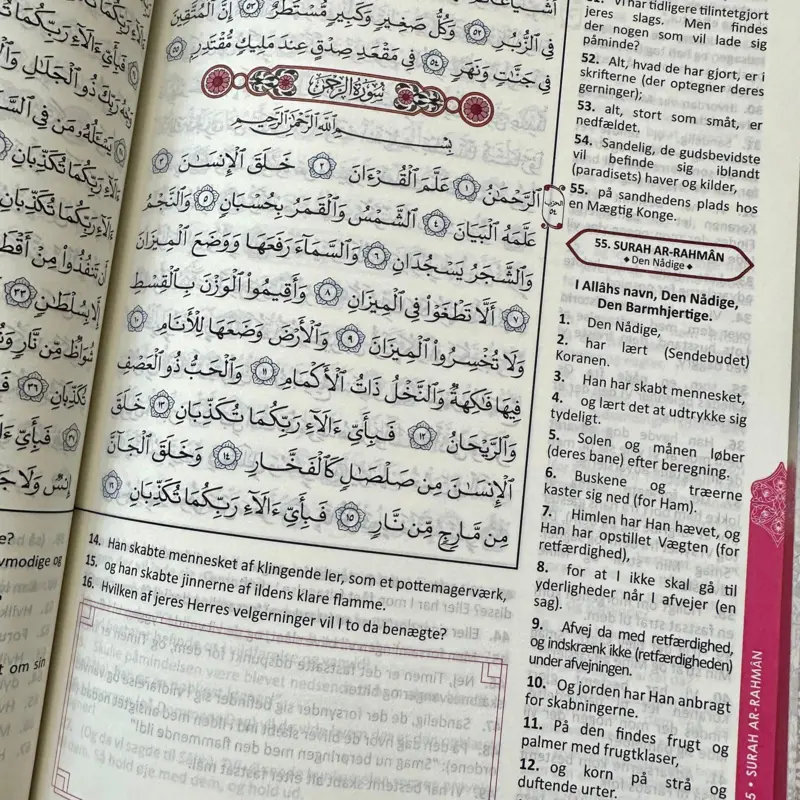 فِى ٱلزُّبُرِ ٥٢ وَكُلُّ صَغِيرٍ وَكَبِيرٍ مُّسْتَطَرٌ ٥٣ إِنَّ ٱلْمُتَّقِينَ
فِى جَنَّٰتٍ وَنَهَرٍ ٥٤ فِى مَقْعَدِ صِدْقٍ عِندَ مَلِيكٍ مُّقْتَدِرٍ ٥٥
سُورَةُ الرَّحْمَٰن
بِسْمِ ٱللَّهِ ٱلرَّحْمَٰنِ ٱلرَّحِيمِ
ٱلرَّحْمَٰنُ ١ عَلَّمَ ٱلْقُرْءَانَ ٢ خَلَقَ ٱلْإِنسَٰنَ ٣
عَلَّمَهُ ٱلْبَيَانَ ٤ ٱلشَّمْسُ وَٱلْقَمَرُ بِحُسْبَانٍ ٥ وَٱلنَّجْمُ
وَٱلشَّجَرُ يَسْجُدَانِ ٦ وَٱلسَّمَآءَ رَفَعَهَا وَوَضَعَ ٱلْمِيزَانَ
٧ أَلَّا تَطْغَوْا۟ فِى ٱلْمِيزَانِ ٨ وَأَقِيمُوا۟ ٱلْوَزْنَ بِٱلْقِسْطِ
وَلَا تُخْسِرُوا۟ ٱلْمِيزَانَ ٩ وَٱلْأَرْضَ وَضَعَهَا لِلْأَنَامِ ١٠
فِيهَا فَٰكِهَةٌ وَٱلنَّخْلُ ذَاتُ ٱلْأَكْمَامِ ١١ وَٱلْحَبُّ ذُو ٱلْعَصْفِ
وَٱلرَّيْحَانُ ١٢ فَبِأَىِّ ءَالَآءِ رَبِّكُمَا تُكَذِّبَانِ ١٣ خَلَقَ
ٱلْإِنسَٰنَ مِن صَلْصَٰلٍ كَٱلْفَخَّارِ ١٤ وَخَلَقَ ٱلْجَآنَّ
مِن مَّارِجٍ مِّن نَّارٍ ١٥ فَبِأَىِّ ءَالَآءِ رَبِّكُمَا تُكَذِّبَانِ ١٦
14. Han skabte mennesket af klingende ler, som et pottemagerværk,
15. og han skabte jinnerne af ildens klare flamme.
16. Hvilken af jeres Herres velgerninger vil I to da benægte?
51. Vi har tidligere tilintetgjort
jeres slags. Men findes
der nogen som vil lade sig
påminde?
52. Alt, hvad de har gjort, er i
skrifterne (der optegner deres
gerninger);
53. alt, stort som småt, er
nedfældet.
54. Sandelig, de gudsbevidste
vil befinde sig iblandt
(paradisets) haver og kilder,
55. på sandhedens plads hos
en Mægtig Konge.
55. SURAH AR-RAHMÂN
◆ Den Nådige ◆
I Allâhs navn, Den Nådige,
Den Barmhjertige.
1. Den Nådige,
2. har lært (Sendebudet)
Koranen.
3. Han har skabt mennesket,
4. og lært det at udtrykke sig
tydeligt.
5. Solen og månen løber
(deres bane) efter beregning.
6. Buskene og træerne
kaster sig ned (for Ham).
7. Himlen har Han hævet, og
Han har opstillet Vægten (for
retfærdighed),
8. for at I ikke skal gå til
yderligheder når I afvejer (en
sag).
9. Afvej da med retfærdighed,
og indskrænk ikke (retfærdigheden)
under afvejningen.
10. Og jorden har Han anbragt
for skabningerne.
11. På den findes frugt og
palmer med frugtklaser,
12. og korn på strå og
duftende urter.
5 • SURAH AR-RAHMÂN